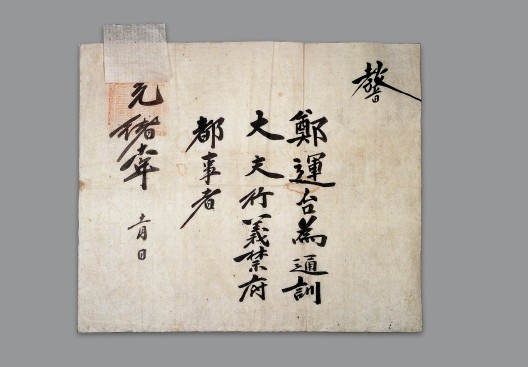 敎旨
鄭運台為通訓
大夫行義禁府
都事者
光緒年 月 日